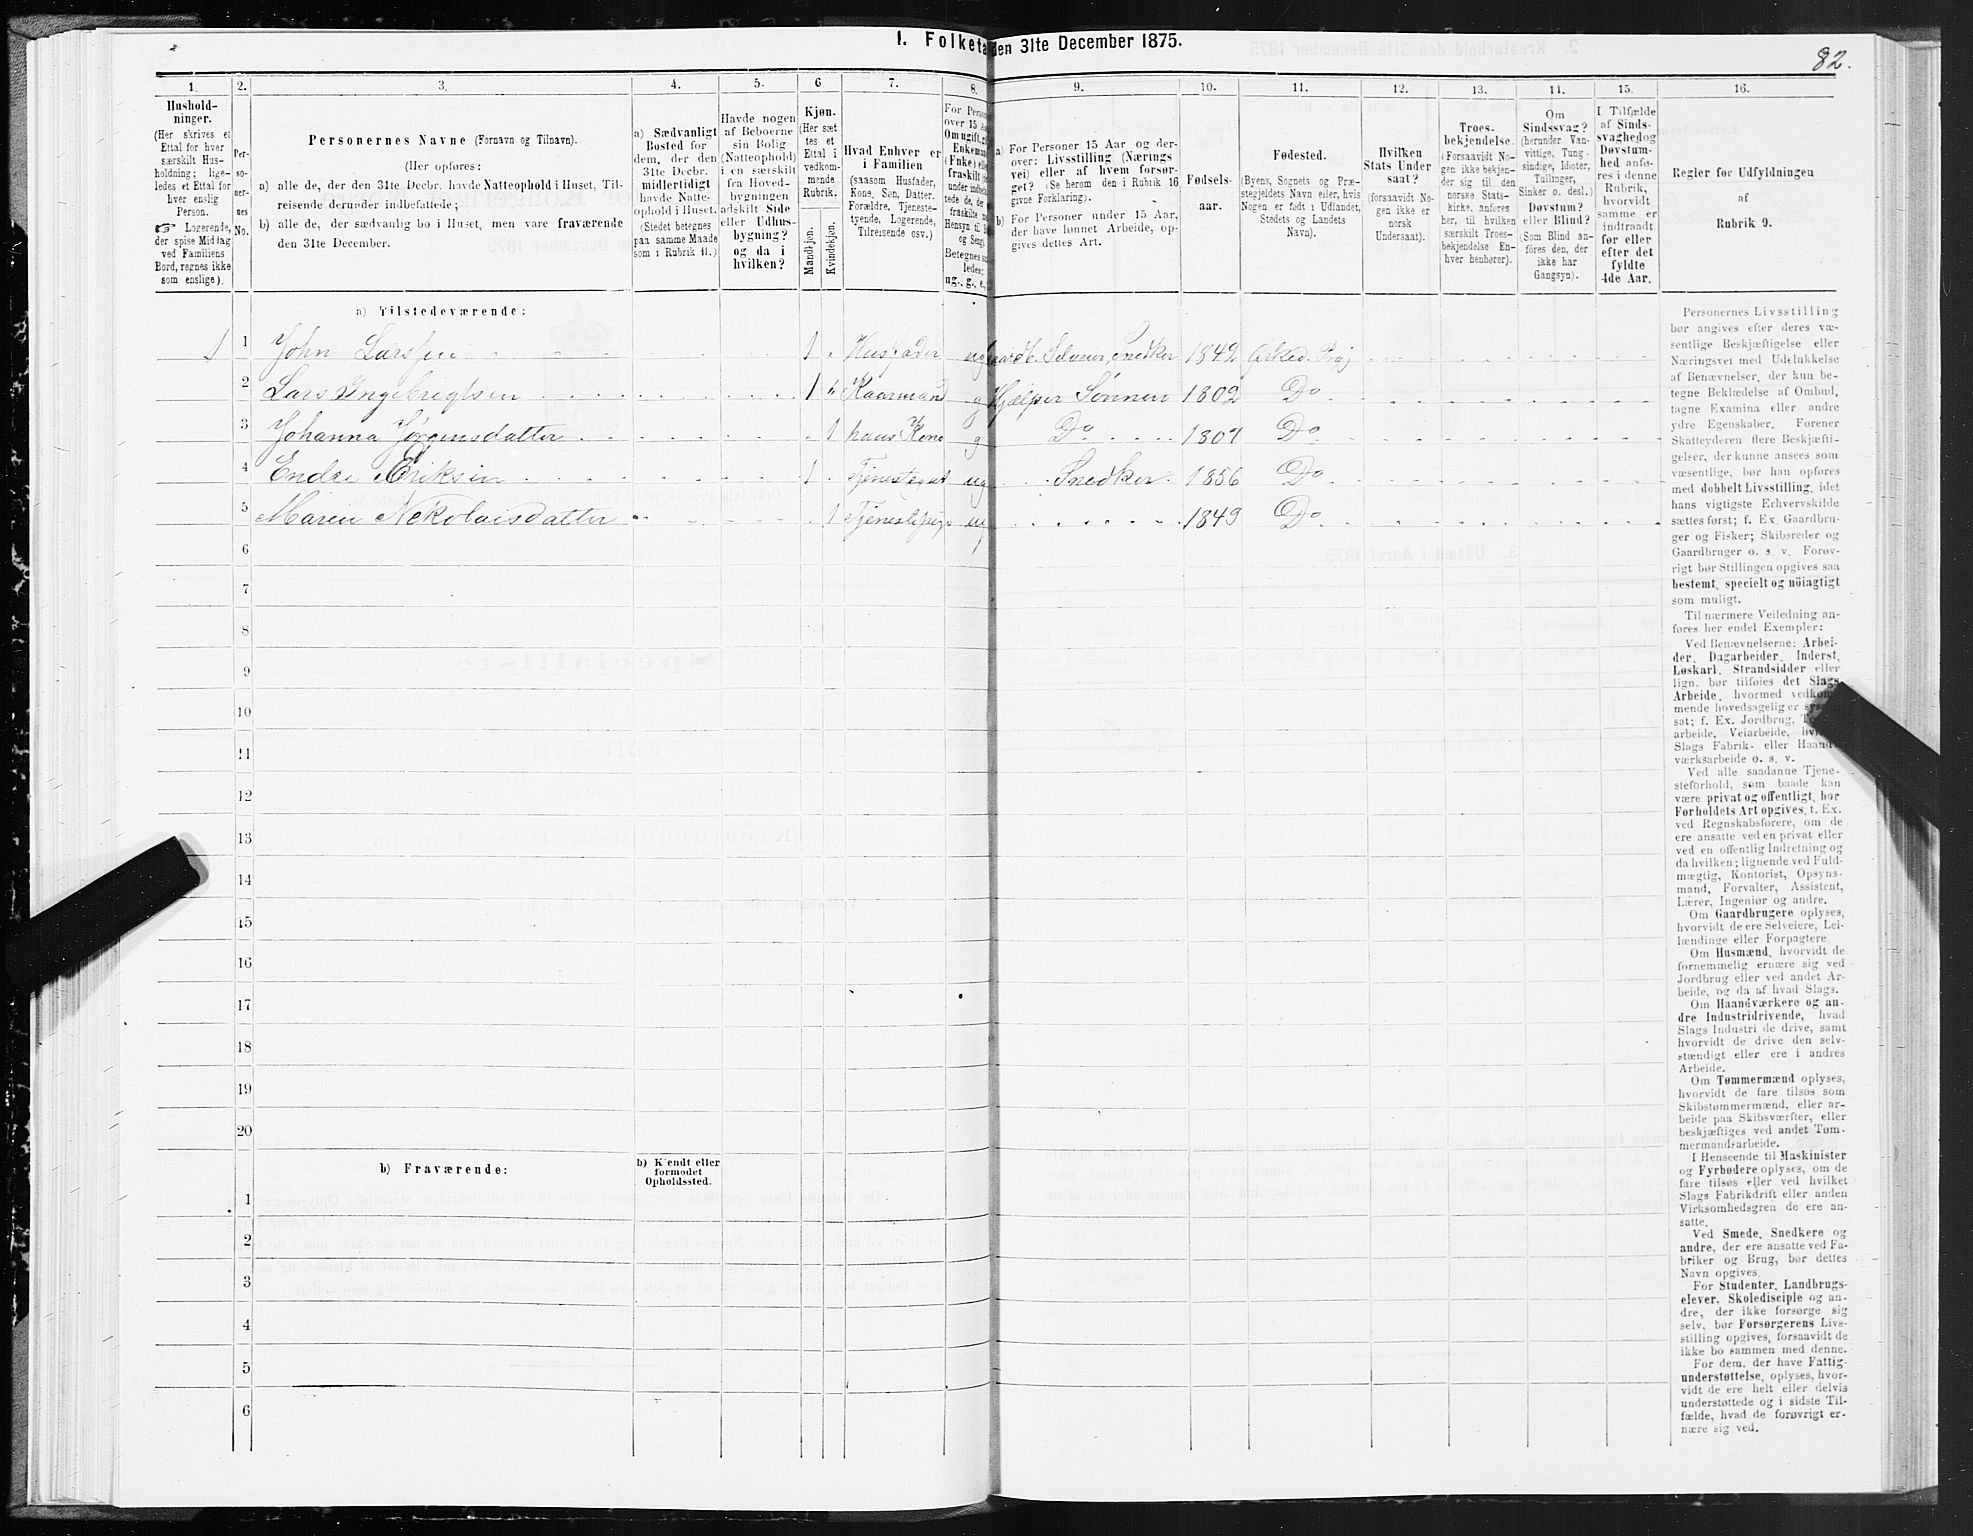 I. Folketa den 31te December 1875.
82.
1. 2. 3. 4. 5. 6 7. 8. 9. 10. 11. 12. 13. 14. 15. 16.
Hushold-
ninger.
(Her skrives et
Ettal for hver
særskilt Hus-
holdning; lige-
ledes et Ettal for
hver enslig
Person.
☞ Logerende,
der spise Middag
ved Familiens
Bord, regnes ikke
som enslige).
Per-
so-
ner-
nes
No.
Personernes Navne (Fornavn og Tilnavn).
(Her opføres:
a) alle de, der den 31te Decbr. havde Natteophold i Huset, Til-
reisende derunder indbefattede;
b) alle de, der sædvanlig bo i Huset, men vare fraværende
den 31te December.
a) Sædvanligt
Bosted for
dem, der den
31te Decbr.
midlertidigt
havde Natte-
ophold i Huset.
(Stedet betegnes
paa samme Maade
som i Rubrik 11.)
Havde nogen
af Beboerne
sin Bolig
(Natteophold)
i en særskilt
fra Hoved-
bygningen
adskilt Side
eller Udhus-
bygning?
og da i
hvilken?
Kjøn.
(Her sæt
tes et
Ettal i
vedkom-
mende
Rubrik.
Mandkjøn.
Kvindekjøn.
Hvad Enhver er
i Familien
(saasom Husfader,
Kone, Søn, Datter,
Forældre, Tjeneste-
tyende, Logerende,
Tilreisende osv.)
For Perso
over 15 A
Om ugift, g
Enkema
(Enke) elle
fraskilt
Hensyn til B
og Seng.
Betegnes sa
ledes:
ug., g., e.,
a) For Personer 15 Aar og der-
over: Livsstilling (Nærings
vei) eller af hvem forsør-
get? (Se herom den i Rubrik 16
givne Forklaring).
b) For Personer under 15 Aar,
der have lønnet Arbeide, op-
gives dettes Art.
Fødsels-
aar.
Fødested.
(Byens, Sognets og Præ-
stegjeldets Navn eller, hvis
Nogen er født i Udlandet,
Stedets og Landets
Navn).
Hvilken
Stats Under
saat?
(forsaavidt No-
gen ikke er
norsk
Undersaat).
Troes-
bekjendelse.
(Forsaavidt No-
gen ikke bekjen-
der sig til den
norske Stats-
kirke, anføres
her, til hvilken
særskilt Troes-
bekjendelse En-
hver henhører).
Om
Sindssvag?
(herunder Van-
vittige, Tung-
sindige, Idioter,
Tullinger,
Sinker o. desl.)
Døvstum?
eller Blind?
(Som Blind an-
føres den, der
ikke har
Gangsyn).
I Tilfælde
af Sinds-
svaghed og
Døvstum-
hed anfø-
res i denne
Rubrik,
hvorvidt
samme er
indtraadt
før eller
efter det
fyldte
4de Aar.
Regler før Udfyldningen
af
Rubrik 9.
a) Tilstedeværende:
1 1 John Larssen 1 Husfader ug Gaardb. Selveier, Snedker 1842 Orked. Prgj
2 Lars Ingebrigtsen 1 Kaarmand g Hjælper Sønnen 1802 Do
3 Johanna Jørgensdatter 1 hans Kone g Do 1807 Do
4 Endre Eriksen 1 ug Snedker 1856 Do
5 Maren Nekolaisdatter 1 Tjenestepige ug 1849 Do
6
7
8
9
10
11
12
13
14
15
16
17
18
19
20
b) Fraværende:
b) Kjendt eller
formodet
Opholdssted.
1
2
3
4
5
6
Personernes Livsstilling
bør angives efter deres væ-
sentlige Beskjæftigelse eller
Næringsvei med Udelukkelse
af Benævnelser, der kun be-
tegne Beklædelse af Ombud,
tagne Examina eller andre
ydre Egenskaber. Forener
Skatteyderen flere Beskjæfti-
gelser, der kunne ansees som
væsentlige, bør han opføres
med dobbelt Livsstilling, idet
hans vigtigste Erhvervskilde
sættes først; f. Ex. Gaardbru-
ger og Fisker; Skibsreder og
Gaardbruger o. s. v. Forøv-
rigt bør Stillingen opgives saa
bestemt, specielt og nöiagtigt
som muligt.
Til nærmere Veiledning an-
føres her endel Exempler:
Ved Benævnelserne: Arbei-
der, Dagarbeider, Inderst,
Løskarl, Strandsidder eller
lign. bør tilføies det Slags
Arbeide, hvormed vedkom-
mende hovedsagelig er syssel
sat; f. Ex. Jordbrug,
arbeide, Veiarbeide,
Slags Fabrik- eller Haand-
værksarbeide o. s. v.
Ved alle saadanne Tjene-
steforhold, som baade kan
være privat og offentligt, bør
Forholdets Art opgives, f. Ex.
ved Regnskabsførere, om de
ere ansatte ved en privat eller
ved en offentlig Indretning og
da hvilken; lignende ved Fuld-
mægtig, Kontorist, Opsyns-
mand, Forvalter, Assistent,
Lærer, Ingeniør og andre.
Om Gaardbrugere oplyses,
hvorvidt de ere Selveiere, Lei-
lændinge eller Forpagtere.
Om Husmænd, hvorvidt de
fornemmelig ernære sig ved
Jordbrug eller ved andet Ar-
beide, og da af hvad Slags.
Om Haandværkere og an-
dre Industridrivende, hvad
Slags Industri de drive, samt
hvorvidt de drive den selv-
stændigt eller ere i andres
Arbeide.
Om Tømmermænd oplyses,
hvorvidt de fare tilsøs som
Skibstømmermænd, eller ar-
beide paa Skibsværfter, eller
beskjæftiges ved andet Tøm-
mermandsarbeide.
I Henseende til Maskinister
og Fyrbødere oplyses, om de
fare tilsøs eller ved hvilket
Slags Fabrikdrift eller anden
Virksomhedsgren de ere an-
satte.
Ved Smede, Snedkere og
andre, der ere ansatte ved Fa-
briker og Brug, bør dettes
Navn opgives.
For Studenter, Landbrugs-
elever, Skoledisciple og an-
dre, der ikke forsørge sig
selv, bør Forsørgerens Livs-
stilling opgives, forsaavidt de
ikke bo sammen med denne.
For dem, der have Fattig-
understøttelse, oplyses, hvor-
vidt de ere helt eller delvis
understøttede og i sidste Til-
fælde, hvad de forøvrigt er-
nære sig ved.